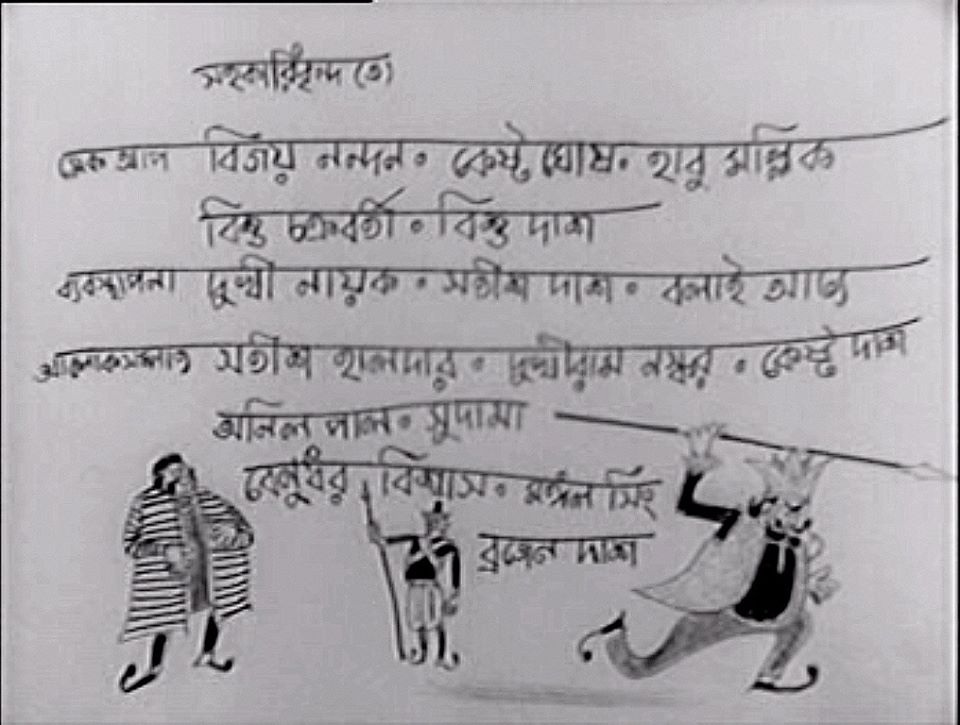 সহকারিবৃন্দ (৩)
মেক আপ বিজয় নন্দন • কেষ্ট ঘোষ • হাবু মল্লিক
বিশু চক্রবর্তী • বিশু দাশ
ব্যবস্থাপনা দুখী নায়ক • সতীশ দাশ • বলাই আঢ্য
আলোকসম্পাত সতীশ হালদার • দুখীরাম নস্কর • কেষ্ট দাশ
অনিল পাল • সুদামা
বেনুধর বিশ্বাস • মঙ্গল সিং
ব্রজেন দাশ